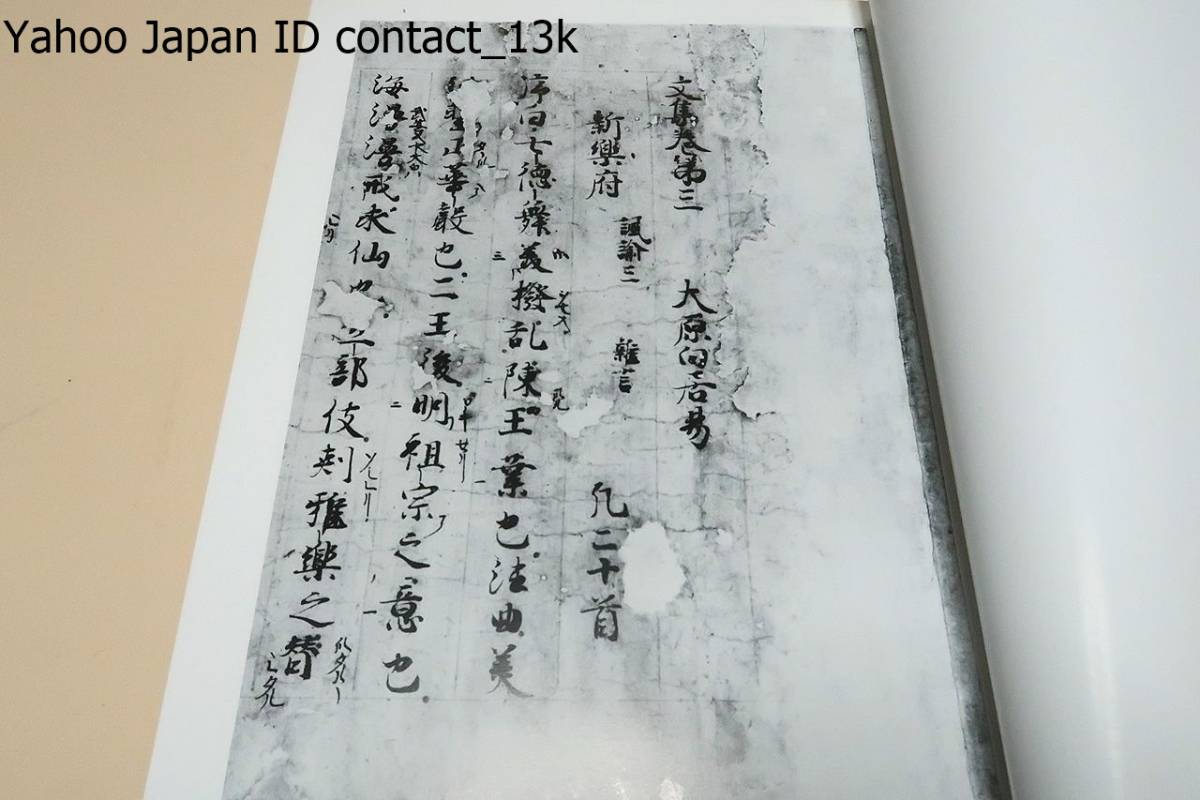 Yahoo Japan ID contact_13k
文集卷第三 大原白居易
新樂府 諷諭三 雜言 凡二十首
序曰七德舞美撥乱陳王業也法曲美
列聖正華聲也二王後明祖宗之意也
海漫漫戒求仙也立部伎刺雅樂之替